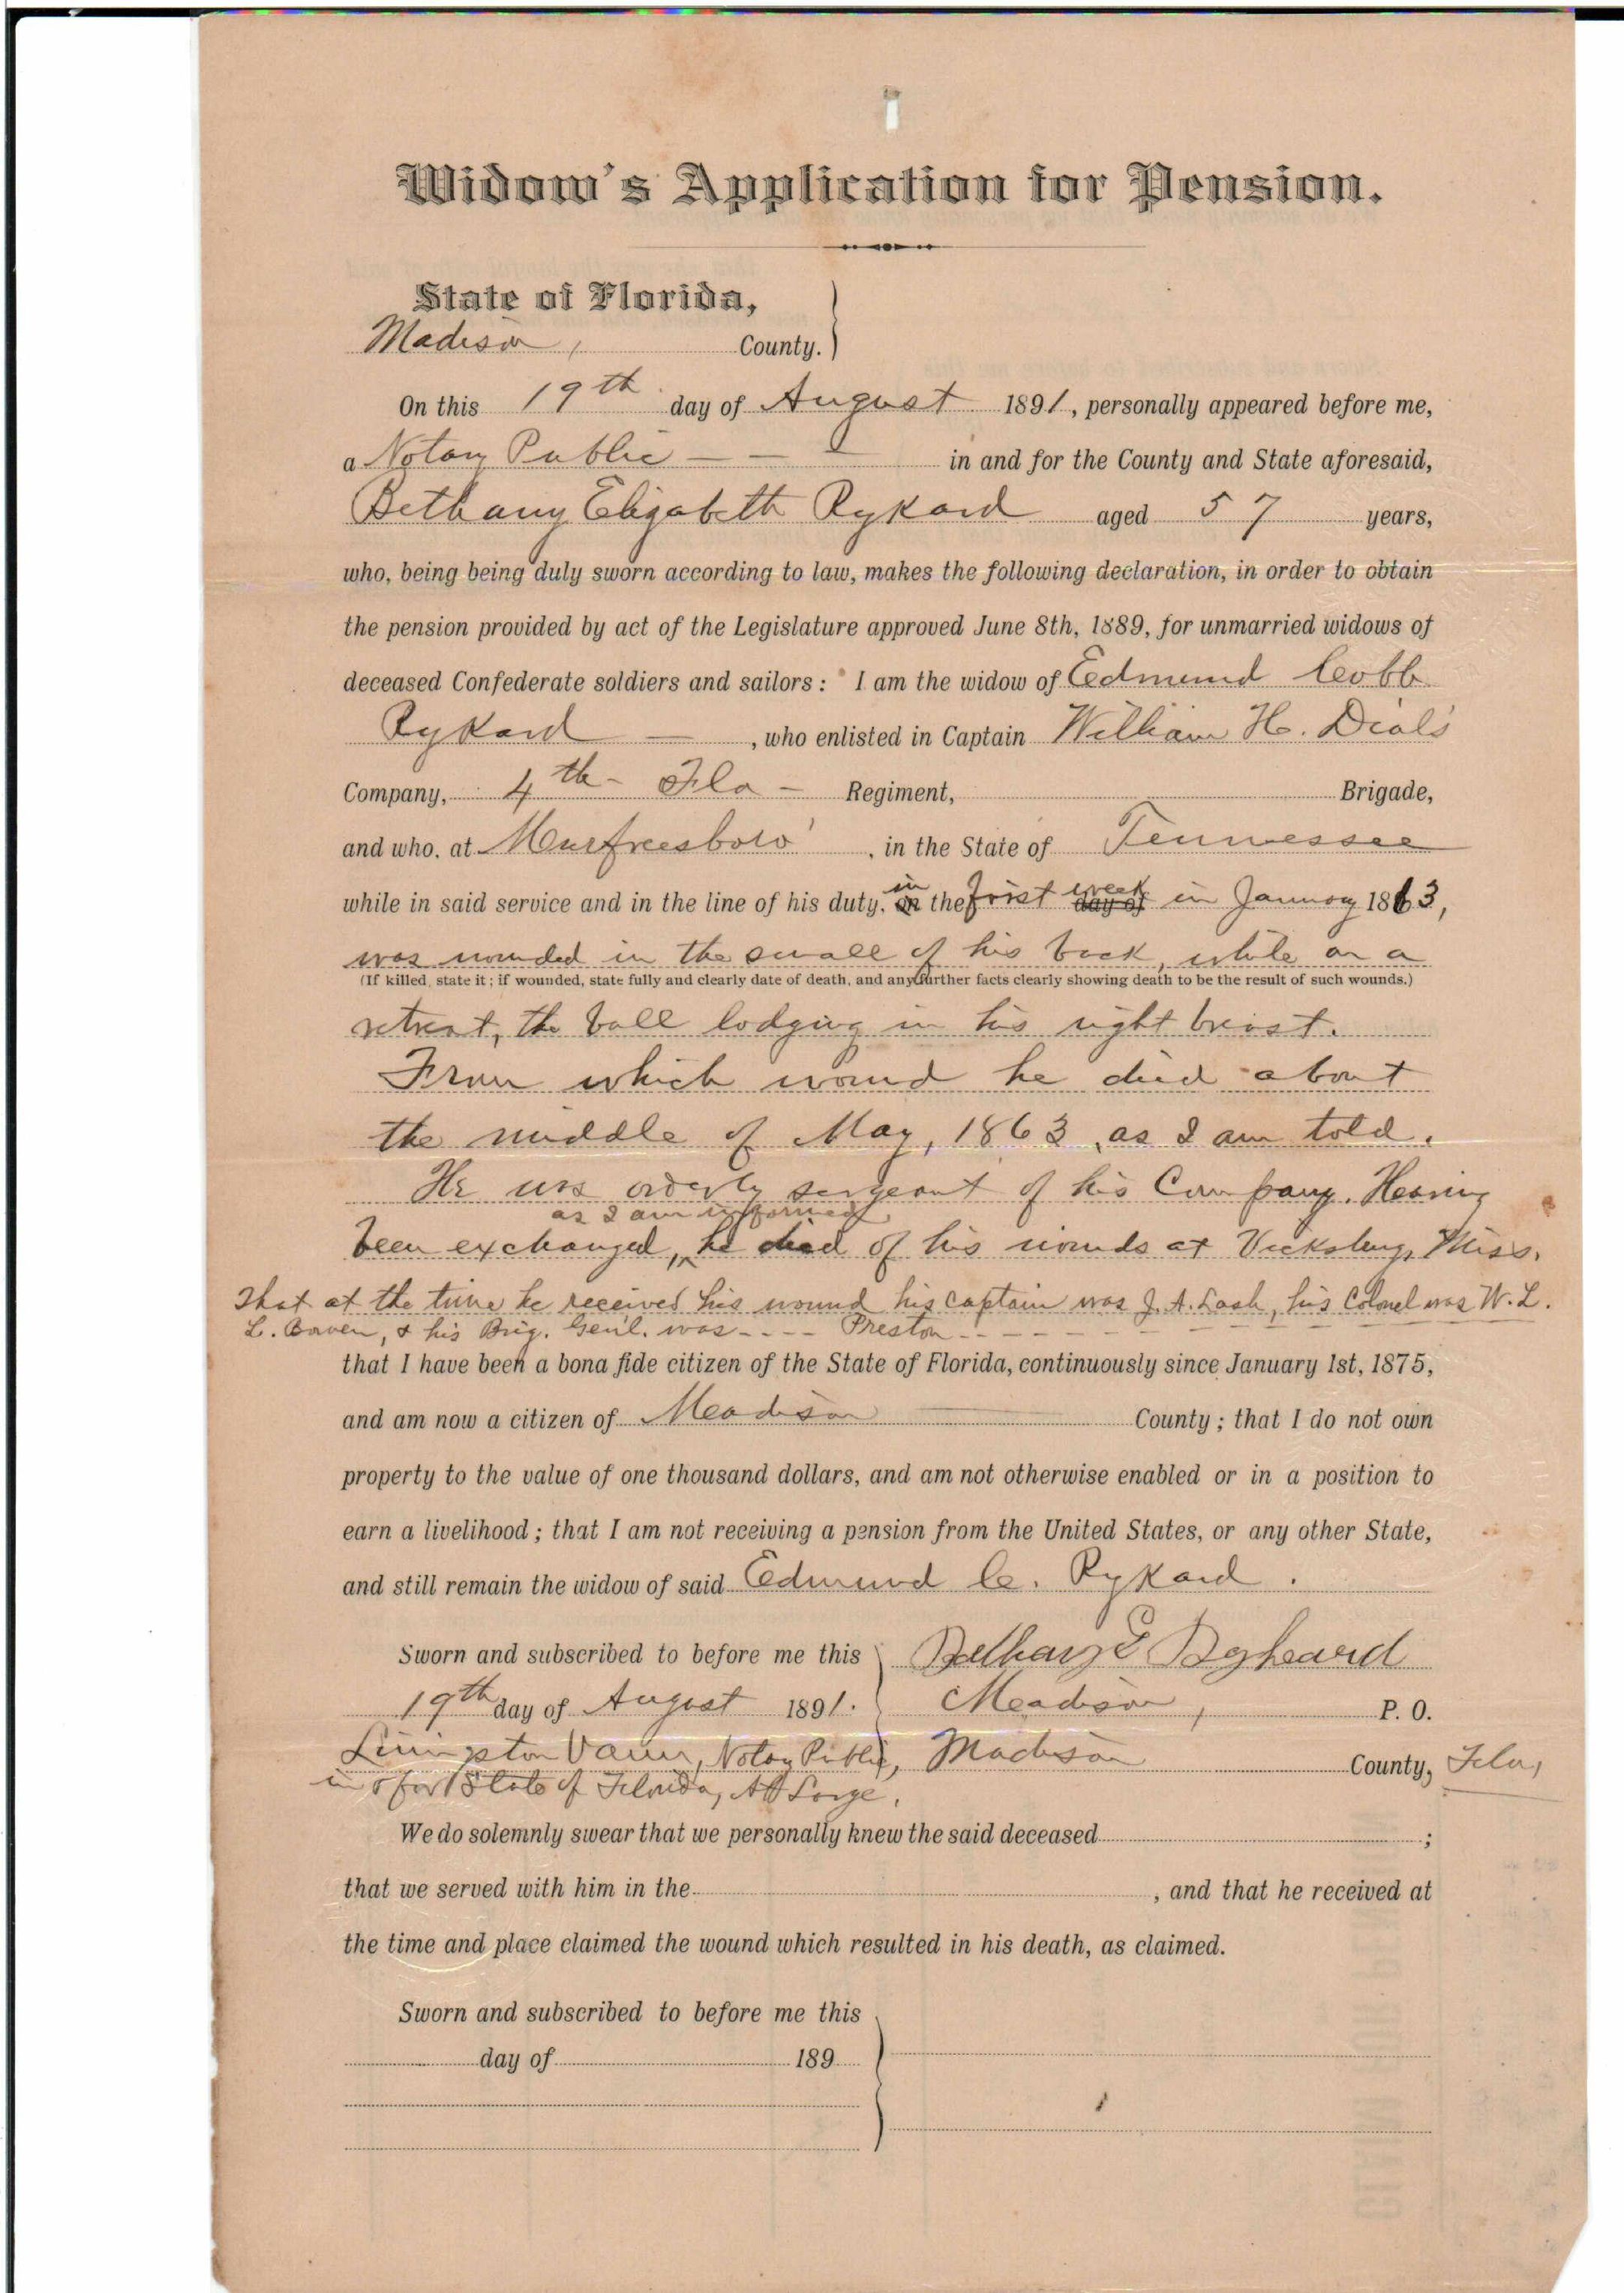 Widow's Application for Pension.
State of Florida,
Madison, County.
On this 19th day of August 1891, personally appeared before me,
a Notary Public — — — in and for the County and State aforesaid,
Bethany Elizabeth Rykard aged 57 years,
who, being being duly sworn according to law, makes the following declaration, in order to obtain
the pension provided by act of the Legislature approved June 8th, 1889, for unmarried widows of
deceased Confederate soldiers and sailors: I am the widow of Edmund Cobb
Rykard — , who enlisted in Captain William H. Dial's
Company, 4th - Fla - Regiment, Brigade,
and who, at Murfreesboro' , in the State of Tennessee
while in said service and in the line of his duty, in the first week in January 1863,
was wounded in the small of his back, while on a
(If killed, state it; if wounded, state fully and clearly date of death, and any further facts clearly showing death to be the result of such wounds.)
retreat, the ball lodging in his right breast.
From which wound he died about
the middle of May, 1863, as I am told.
He was orderly sergeant of his Company. Having
as I am informed
been exchanged, he died of his wounds at Vicksburg, Miss.
That at the time he received his wound his captain was J. A. Lash, his Colonel was W. L.
L. Bowen, & his Brig. Genl. was - - - - Preston - - - - - - - - -
that I have been a bona fide citizen of the State of Florida, continuously since January 1st, 1875,
and am now a citizen of Madison County; that I do not own
property to the value of one thousand dollars, and am not otherwise enabled or in a position to
earn a livelihood; that I am not receiving a pension from the United States, or any other State,
and still remain the widow of said Edmund C. Rykard.
Sworn and subscribed to before me this Bethany E Rykeard
19th day of August 1891. Madison, P. O.
Livingston Vann, Notary Public, Madison County, Fla,
in & for State of Florida, At Large.
We do solemnly swear that we personally knew the said deceased ;
that we served with him in the , and that he received at
the time and place claimed the wound which resulted in his death, as claimed.
Sworn and subscribed to before me this
day of 189